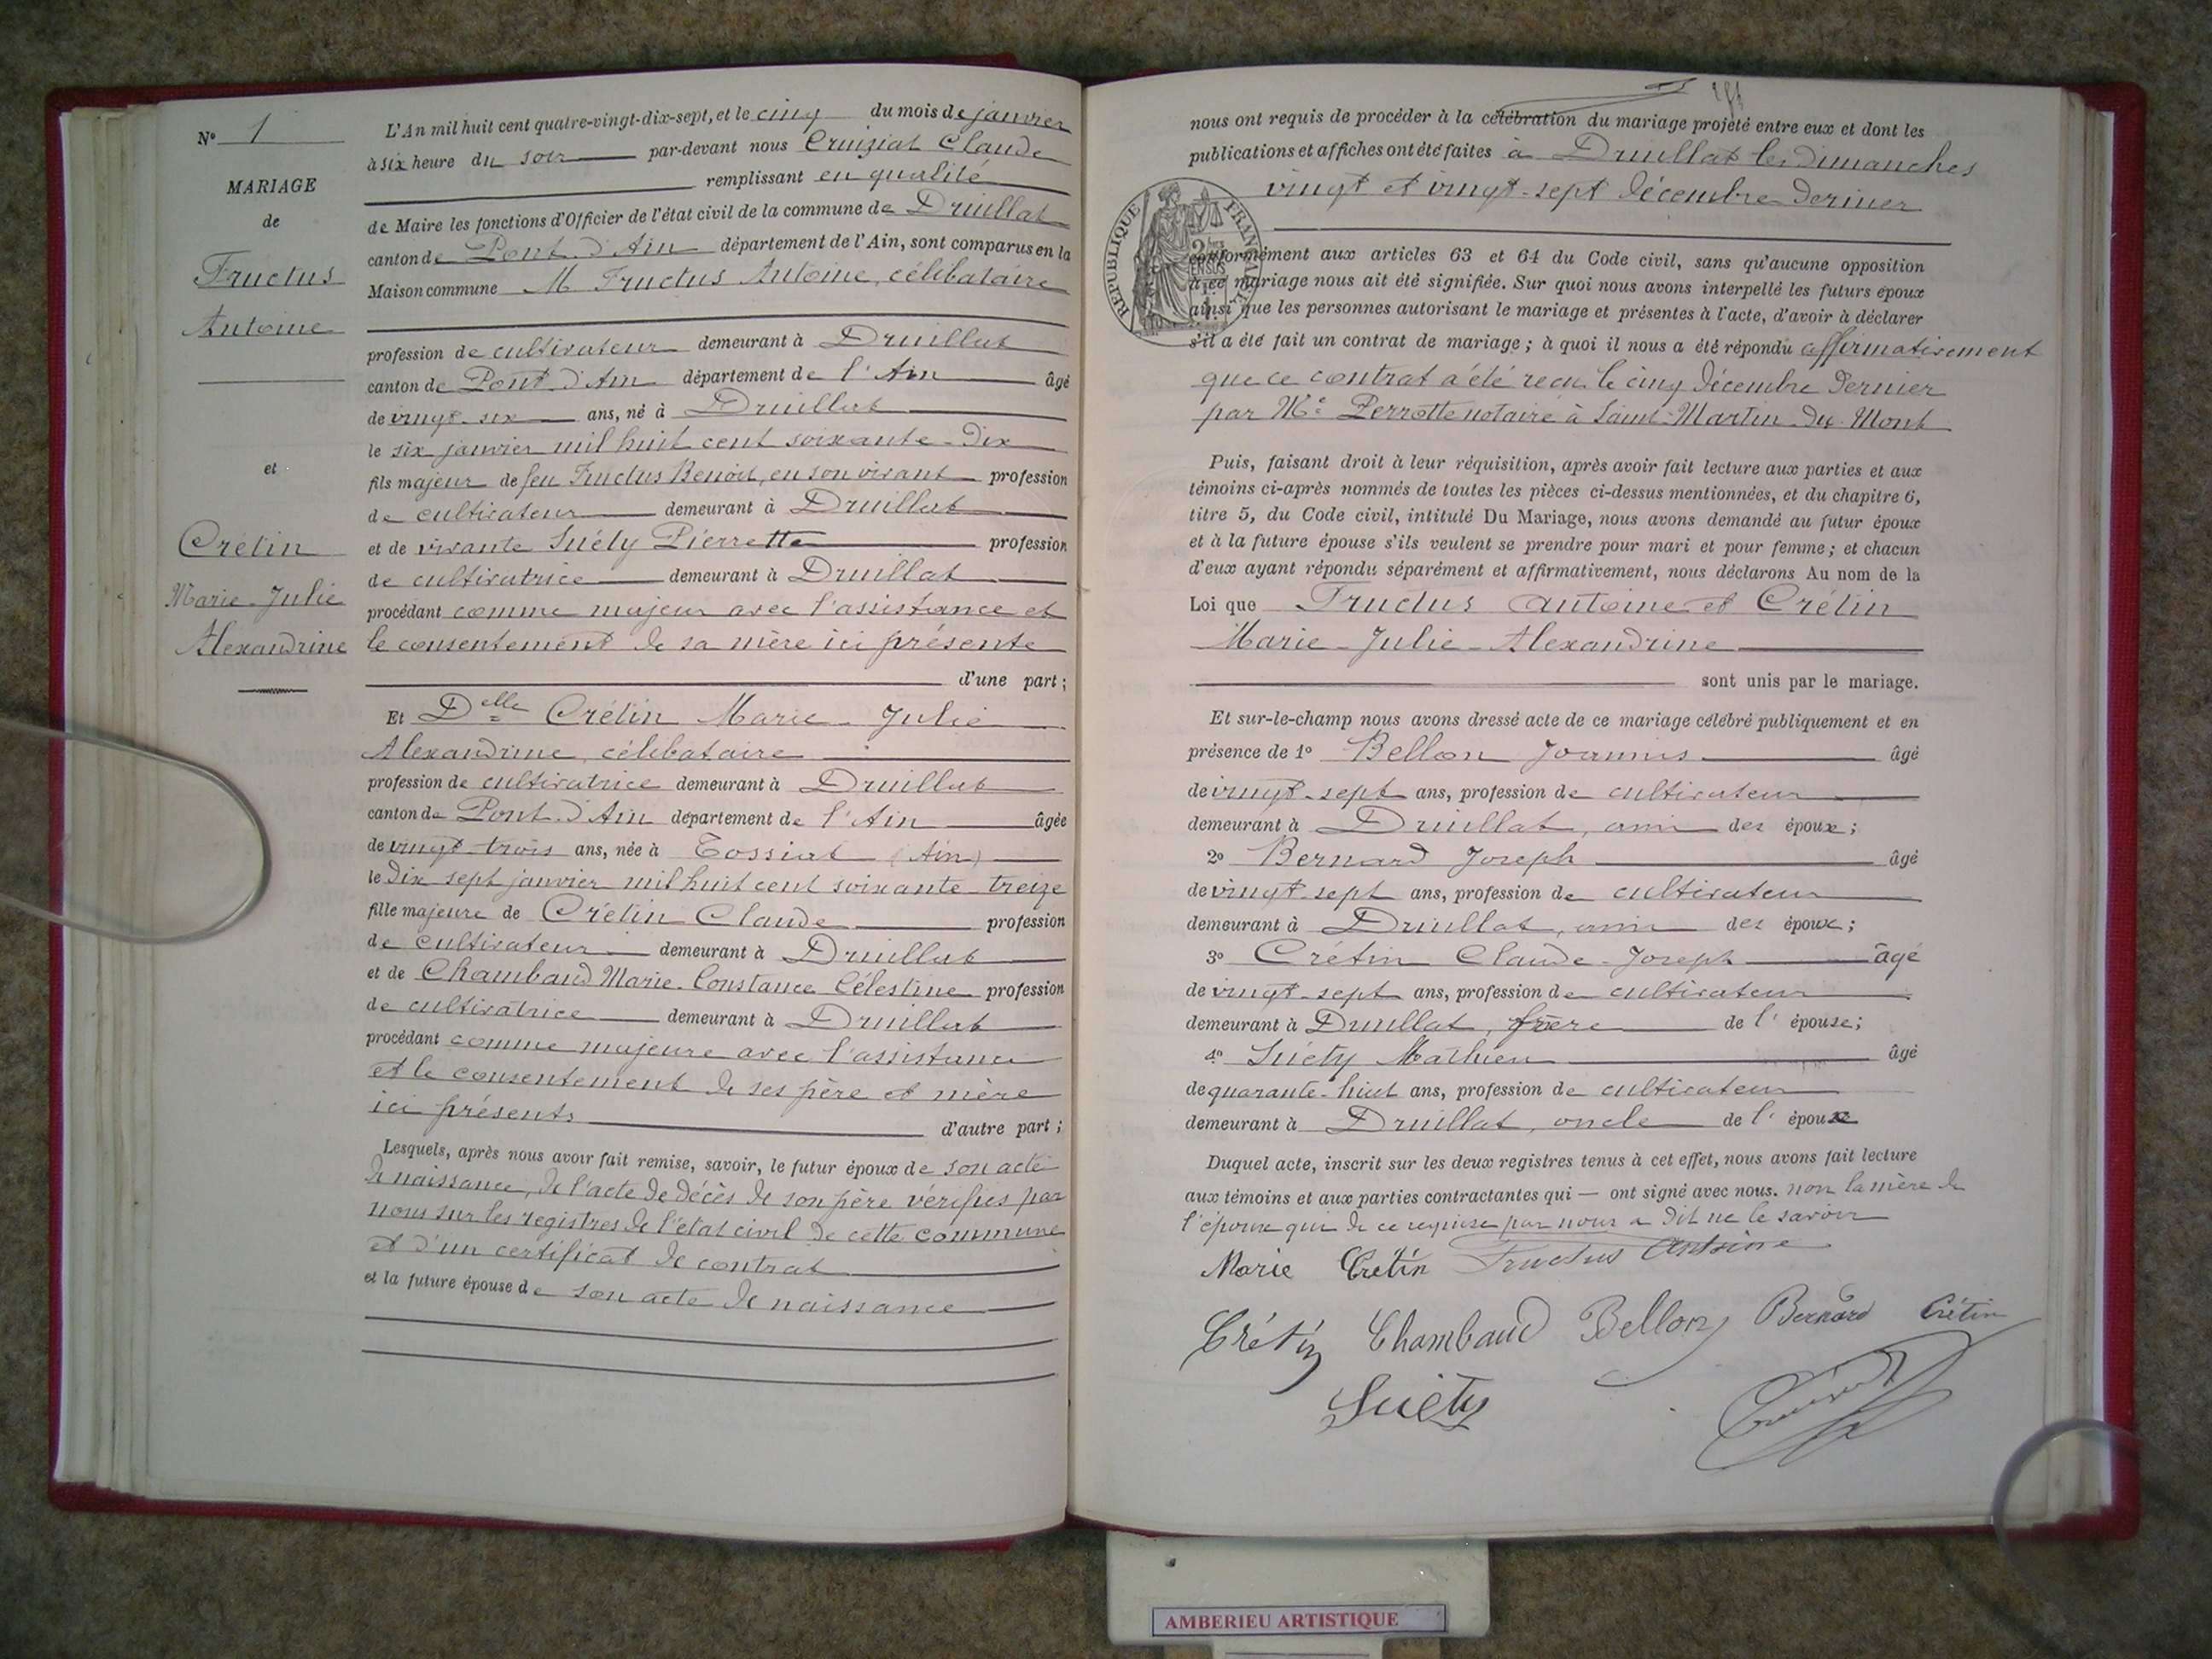 N° 1
MARIAGE
de
Fructus
Antoine
et
Crétin
Marie-Julie
Alexandrine
L'An mil huit cent quatre-vingt-dix-sept, et le cinq du mois de janvier
à six heure du soir par-devant nous Cruiziat Claude
remplissant en qualité
de Maire les fonctions d'Officier de l'état civil de la commune de Druillat
canton de Pont-d'Ain département de l'Ain, sont comparus en la
Maison commune M Fructus Antoine, célibataire
profession de cultivateur demeurant à Druillat
canton de Pont-d'Ain département de l'Ain âgé
de vingt-six ans, né à Druillat
le six janvier mil huit cent soixante-dix
fils majeur de feu Fructus Benoit, en son vivant profession
de cultivateur demeurant à Druillat
et de vivante Suéty Pierrette profession
de cultivatrice demeurant à Druillat
procédant comme majeur avec l'assistance et
le consentement de sa mère ici présente
d'une part;
Et Delle Crétin Marie-Julie
Alexandrine, célibataire
profession de cultivatrice demeurant à Druillat
canton de Pont-d'Ain département de l'Ain âgée
de vingt-trois ans, née à Tossiat (Ain)
le dix sept janvier mil huit cent soixante-treize
fille majeure de Crétin Claude profession
de cultivateur demeurant à Druillat
et de Chambaud Marie-Constance Célestine profession
de cultivatrice demeurant à Druillat
procédant comme majeure avec l'assistance
et le consentement de ses père et mère
ici présents
d'autre part;
Lesquels, après nous avoir fait remise, savoir, le futur époux de son acte
de naissance, de l'acte de décès de son père vérifiés par
nous sur les registres de l'état civil de cette commune
et d'un certificat de contrat
et la future épouse de son acte de naissance
nous ont requis de procéder à la célébration du mariage projeté entre eux et dont les
publications et affiches ont été faites à Druillat les dimanches
vingt et vingt-sept décembre dernier
REPUBLIQUE FRANÇAISE
conformément aux articles 63 et 64 du Code civil, sans qu'aucune opposition
à ce mariage nous ait été signifiée. Sur quoi nous avons interpellé les futurs époux
ainsi que les personnes autorisant le mariage et présentes à l'acte, d'avoir à déclarer
s'il a été fait un contrat de mariage; à quoi il nous a été répondu affirmativement
que ce contrat a été reçu le cinq décembre dernier
par Me Perrotte notaire à Saint-Martin-du-Mont
Puis, faisant droit à leur réquisition, après avoir fait lecture aux parties et aux
témoins ci-après nommés de toutes les pièces ci-dessus mentionnées, et du chapitre 6,
titre 5, du Code civil, intitulé Du Mariage, nous avons demandé au futur époux
et à la future épouse s'ils veulent se prendre pour mari et pour femme; et chacun
d'eux ayant répondu séparément et affirmativement, nous déclarons Au nom de la
Loi que Fructus Antoine et Crétin
Marie-Julie-Alexandrine
sont unis par le mariage.
Et sur-le-champ nous avons dressé acte de ce mariage célébré publiquement et en
présence de 1° Bellon Joannis âgé
de vingt-sept ans, profession de cultivateur
demeurant à Druillat, ami des époux;
2° Bernard Joseph âgé
de vingt-sept ans, profession de cultivateur
demeurant à Druillat, ami des époux;
3° Crétin Claude-Joseph âgé
de vingt-sept ans, profession de cultivateur
demeurant à Druillat, frère de l'épouse;
4° Suéty Mathieu âgé
de quarante-huit ans, profession de cultivateur
demeurant à Druillat, oncle de l'époux
Duquel acte, inscrit sur les deux registres tenus à cet effet, nous avons fait lecture
aux témoins et aux parties contractantes qui — ont signé avec nous. non la mère de
l'époux qui de ce requise par nous a dit ne le savoir
Marie Crétin Fructus Antoine
Crétin Chambaud Bellon Bernard Crétin
Suéty
AMBERIEU ARTISTIQUE